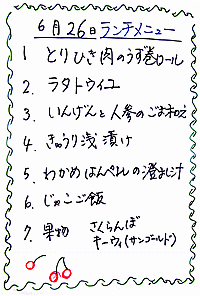 6月26日ランチメニュー
1 とりひき肉のうず巻ロール
2. ラタトウイユ
3. いんげんと人参のごま和え
4. きゅうり浅漬け
5. わかめはんぺんの澄まし汁
6. じゃこご飯
7. 果物 さくらんぼ
キーウィ(サンゴールド)